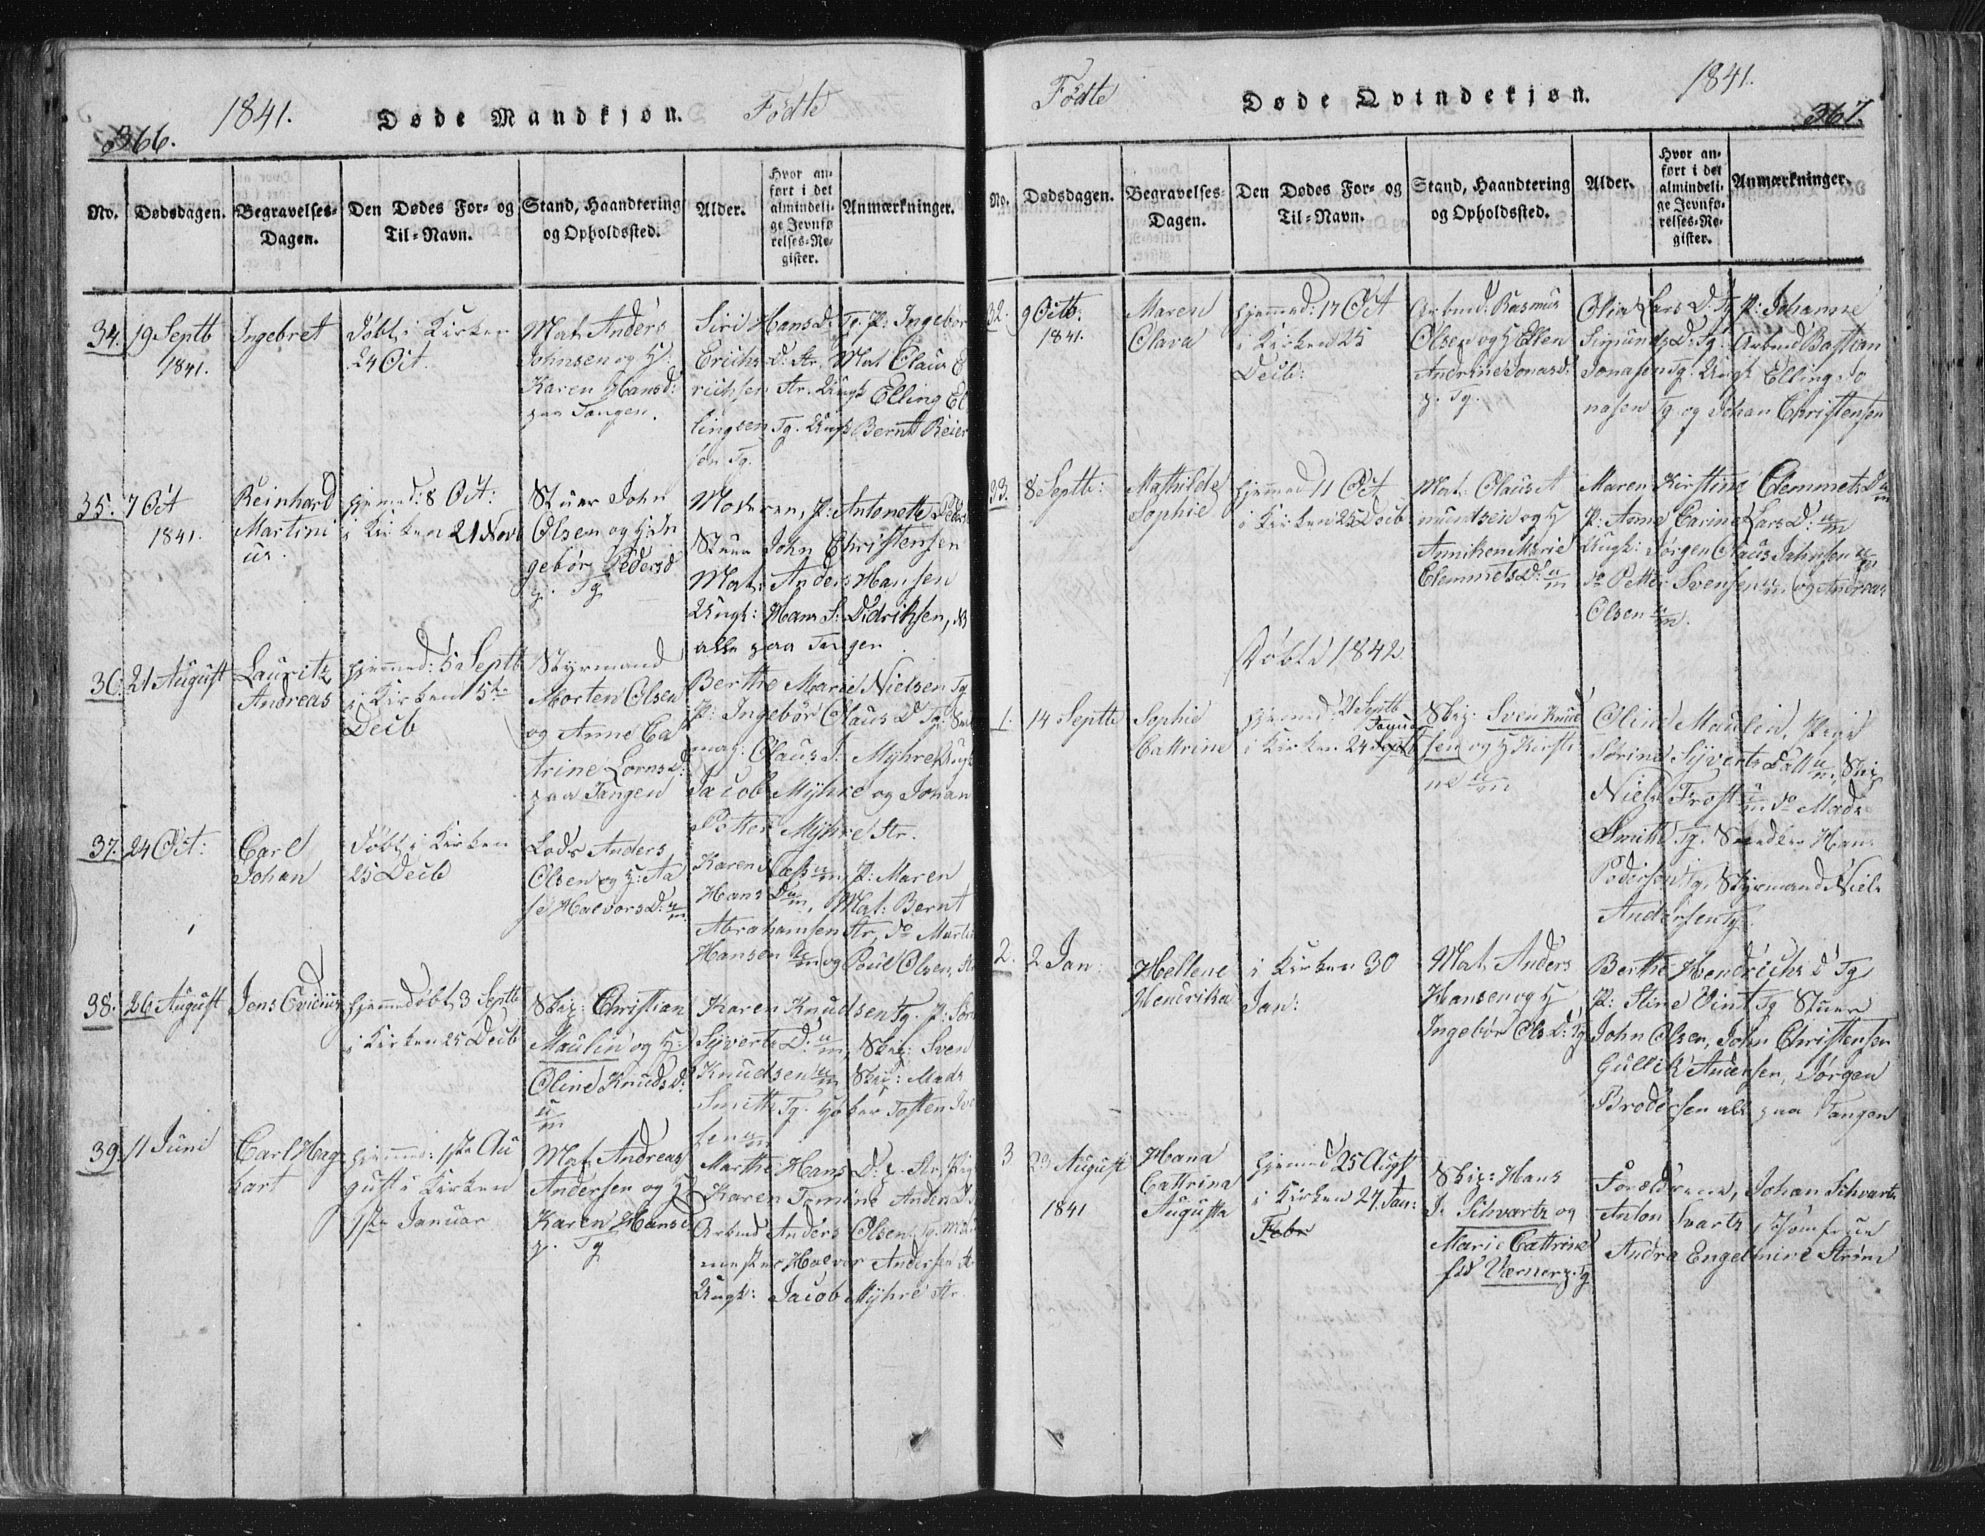 366.
1841.
Døde Mandkjøn.
Fødte
No.
Dødsdagen.
Begravelses-
Dagen.
Den Dødes For- og
Til-Navn.
Stand, Haandtering
og Opholdssted.
Alder.
Hvor an-
ført i det
almindeli-
ge Jevnfø-
relses-Re-
gister.
Anmærkninger.
34.
19 Septb
1841.
Ingebret
Døbt i Kirken
24 Oct.
Mat. Anders
Johnsen og H:
Karen Hansd:
paa Tangen.
Siri Hansd: Tg. P: Ingebor
Erichs D. Str. Mat Claus E
richsen Str. Ungk Elling El
lingsen Tg. Ungk Bernt Reier
sen Tg.
35.
7 Oct
1841.
Reinhard
Martini
us.
hjemmed: 8 Oct:
i Kirken 21 Novb
Stuer John
Olsen og H: In
gebor Pedersd
p. Tg
Moderen, P: Antonette Peders
Stuer John Christensen
Mat: Anders Hansen
Ungk: Hans S: Didriksen,
alle paa Tangen.
36.
21 August
Lauritz
Andreas
hjemmed: 5 Septb
i Kirken 5te
Decb
Styrmand
Morten Olsen
og Anne Ca
trine Lornsd:
paa Tangen
Berthe Marie Nielsen Tg
P: Ingebor Claus D Tg:
mag: Claus S. Myhre Ungk
Jacob Myhre og Johan
Petter Myhre Str.
37.
24 Oct:
Carl
Johan
Døbt i Kirken
25 Decb
Lods Anders
Olsen og H: Aa
se Halvors D:
Karen Næss P: Maren
Hans D Mat: Bernt
Abrahamsen Str, do Martin
Hansen og Poul Olsen,
38.
26 August
Jens Ovidius
hjemmedøbt 3 Septb
i Kirken 25 Decb
Skip: Christian
Maulin og H:
Oline Knuds D:
Karen Knudsen Tg. P:
Syverts D: Skip: Sven
Knudsen Skip: Mads
Smith Tg. Tosten
39.
11 Juni
Carl Hag
bart
hjemmed: 1ste Au
gust i Kirken
1ste Januar
Mat. Andreas
Andersen og H
Karen Hansd
p. Tg
Marthe Hans D: p. Str. Pig
Karen Tomine Anders D
Arbmd Anders Olsen Tg.
Halvor Andersen
Ungk: Jacob Myhre Str.
Fødte
Døde Qvindekjøn.
1841.
367.
No.
Dødsdagen.
Begravelses-
Dagen.
Den Dødes For- og
Til-Navn.
Stand, Haandtering
og Opholdssted.
Alder.
Hvor an-
ført i det
almindeli-
ge Jevnfø-
relses-Re-
gister.
Anmærkninger.
32.
9 Octb:
1841.
Maren
Olava
hjemmed: 17 Oct
i Kirken 25
Decb:
Arbmd: Rasmus
Olsen og H Ellen
Andrine Jonasd:
p. Tg.
Olia Lars D. Tg P: Johanne
Simunds D: Tg. Arbmd Bastian
Jonasen Tg. Ungk Elling Jo
nasen Tg. og Johan Christensen
33.
8 Septb:
Mathilde
Sophie
hjemmed 11 Oct
i Kirken 25 Decb
Mat: Claus A
mundsen og H
Anniken Marie
Clemmets D:
Maren Kirstine Clemmets D
P: Anne Carine Lars D:
Ungk: Jørgen Claus Johnsen
do Petter Svensen og Andreas
Olsen
Døbte 1842.
1.
14 Septb
Sophie
Cattrine
hjemmed: 21 Septb
i Kirken 24 Januar
Skip: Sven Knud
sen og H Kirsti
ne
Oline Maulin, Pige
Sørine Syverts Datt Skip
Niels Frost do Mads
Smith Tg. Snedker Hans
Pedersen Tg. Styrmand Niels
Andersen Tg.
2.
2 Jan:
Hellene
Hendrika
i Kirken 30
Jan:
Mat Anders
Hansen og H
Ingebor Ols D: Tg
Berthe Hendrichs D Tg
P: Stine Vint Tg Stuer
John Olsen, John Christensen
Gullik Andersen, Jørgen
Brodersen alle paa Tangen
3
23 August
1841
Hana
Cattrina
Augusta
hjemmed 25 Augst
i Kirken 27. Jan:
Febr
Skip: Hans
J. Schvartz og
Marie Cattrine
fød Værner p. Tg
Forældrene, Johan Schvartz
Anton Svartz, Jomfrue
Andra Engelmine Strøm